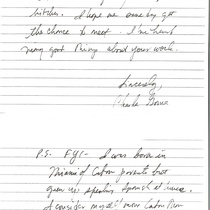 bitches. I hope we someday get
the chance to meet. I've heard
many good things about your work.
Sincerely,
Charle
P.S. FYI - I was born in
Miami of Cuban parents but
grew up speaking Spanish at home.
I consider myself more Cuban than